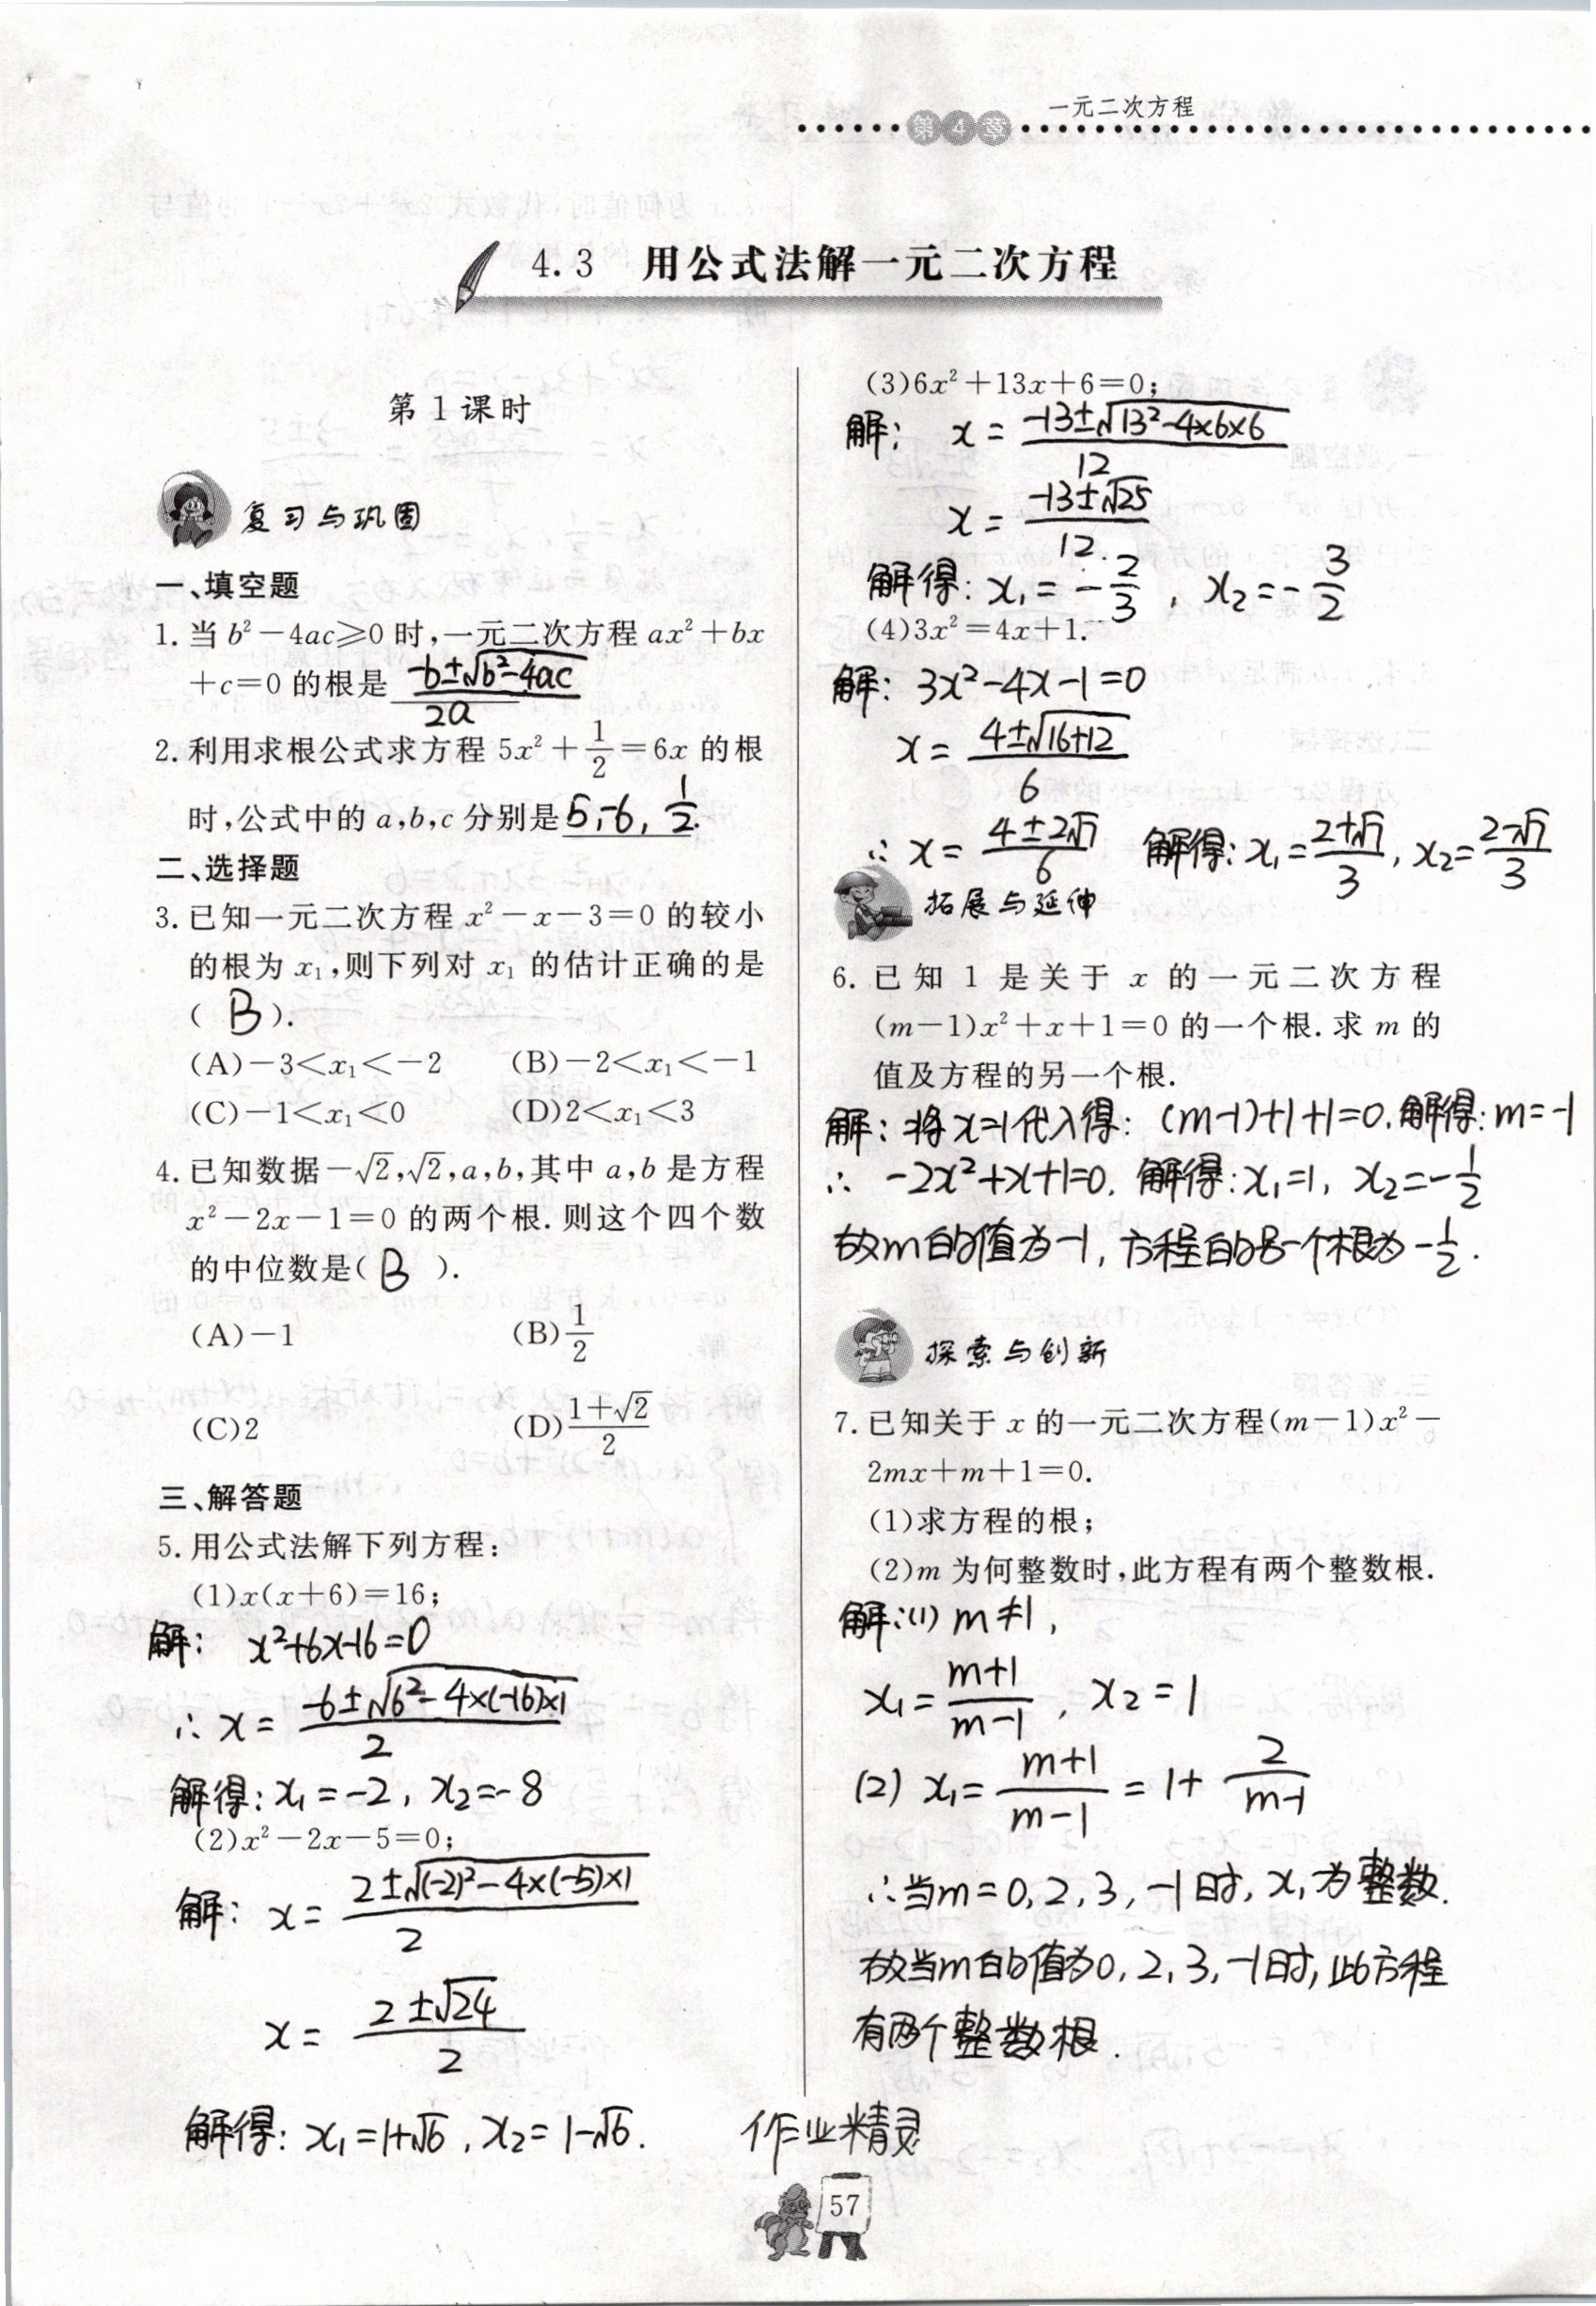 一元二次方程
第4章
4.3 用公式法解一元二次方程
第1课时
复习与巩固
一、填空题
1. 当 b²-4ac≥0 时,一元二次方程 ax²+bx
+c=0 的根是 (-b±√(b²-4ac))/2a
2. 利用求根公式求方程 5x²+1/2=6x 的根
时,公式中的 a,b,c 分别是 5,-6, 1/2.
二、选择题
3. 已知一元二次方程 x²-x-3=0 的较小
的根为 x₁,则下列对 x₁ 的估计正确的是
( B ).
(A)-3<x₁<-2 (B)-2<x₁<-1
(C)-1<x₁<0 (D)2<x₁<3
4. 已知数据-√2,√2,a,b,其中 a,b 是方程
x²-2x-1=0 的两个根. 则这个四个数
的中位数是( B ).
(A)-1 (B)1/2
(C)2 (D)(1+√2)/2
三、解答题
5. 用公式法解下列方程:
(1)x(x+6)=16;
解: x²+6x-16=0
∴ x= (-6±√(6²-4×(-16)×1))/2
解得: x₁=-2, x₂=-8
(2)x²-2x-5=0;
解: x= (2±√((-2)²-4×(-5)×1))/2
x= (2±√24)/2
解得: x₁=1+√6, x₂=1-√6.
(3)6x²+13x+6=0;
解: x= (-13±√(13²-4×6×6))/12
x= (-13±√25)/12.
解得: x₁=-2/3, x₂=-3/2
(4)3x²=4x+1.
解: 3x²-4x-1=0
x= (4±√(16+12))/6
∴ x= (4±2√7)/6 解得: x₁=(2+√7)/3, x₂=(2-√7)/3
拓展与延伸
6. 已知 1 是关于 x 的一元二次方程
(m-1)x²+x+1=0 的一个根. 求 m 的
值及方程的另一个根.
解: 将x=1代入得: (m-1)+1+1=0. 解得: m=-1
∴ -2x²+x+1=0. 解得: x₁=1, x₂=-1/2
故m的值为-1, 方程的另一个根为-1/2.
探索与创新
7. 已知关于 x 的一元二次方程(m-1)x²-
2mx+m+1=0.
(1)求方程的根;
(2)m 为何整数时,此方程有两个整数根.
解:(1) m≠1,
x₁=(m+1)/(m-1), x₂=1
(2) x₁=(m+1)/(m-1)=1+2/(m-1)
∴当m=0,2,3,-1时, x₁为整数.
故当m的值为0,2,3,-1时, 此方程
有两个整数根.
作业精灵
57